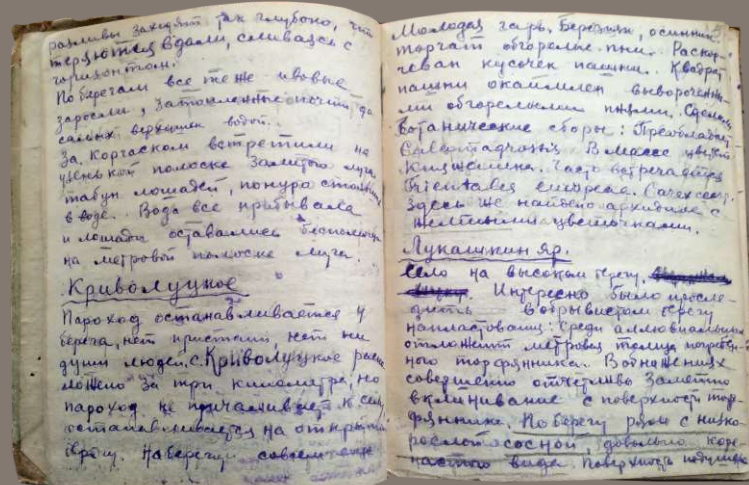 разливы заходят так глубоко, что
теряются вдали, сливаясь с
горизонтом.
По берегам все те же ивовые
заросли, затопленные почти до
самых верхушек водой.
За Каргаском встретили на
узенькой полоске залитого луга
табун лошадей, понуро стоявших
в воде. Вода все прибывала
и лошади оставались беспомощно
на метровой полоске луга.
Криволуцкое
Пароход останавливается у
берега, нет пристани, нет ни
души людей. с. Криволуцкое распо
ложено за три километра, но
пароход не причаливает к селу,
останавливается на открытом
берегу. На берегу совершенно
Молодая гарь. Березки, осинник
торчат обгорелые пни. Раскор-
чеван кусочек пашни. Квадрат
пашни окаймлен вывороченны-
ми обгорелыми пнями. Сделали
ботанические сборы: Преобладает
В массе цветет
Княженика. Часто встречается
Trientalis europaea. Carex
Здесь же найдено с
желтыми цветочками.
Лукашкин яр.
Село на высоком берегу.
Интересно было просле-
дить в обрывистом берегу
напластования: среди аллювиальных
отложений метровая толща погребен-
ного торфянника. В обнажениях
совершенно отчетливо заметно
вклинивание с поверхности тор-
фянника. По берегу рям с низко-
рослой сосной, довольно коре-
настого вида. Поверхность